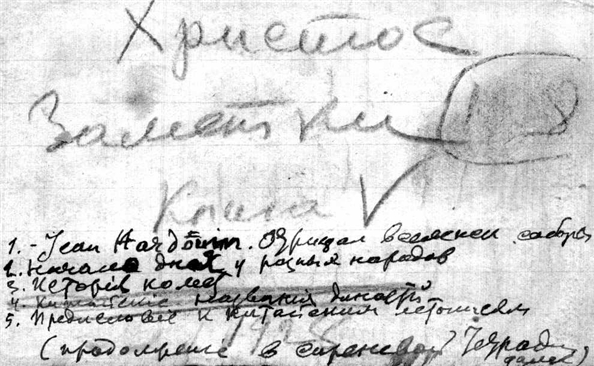 Христос
Заметки 1-8
Книга V
1. - Jean Hardouin. Отрицал вселенск. соборы
2. Начало дней у разных народов
3. Исторiя
4. названия династiй
5. Предисловие к китайским летописям
(продолженiе в сиреневой Тетради далее)